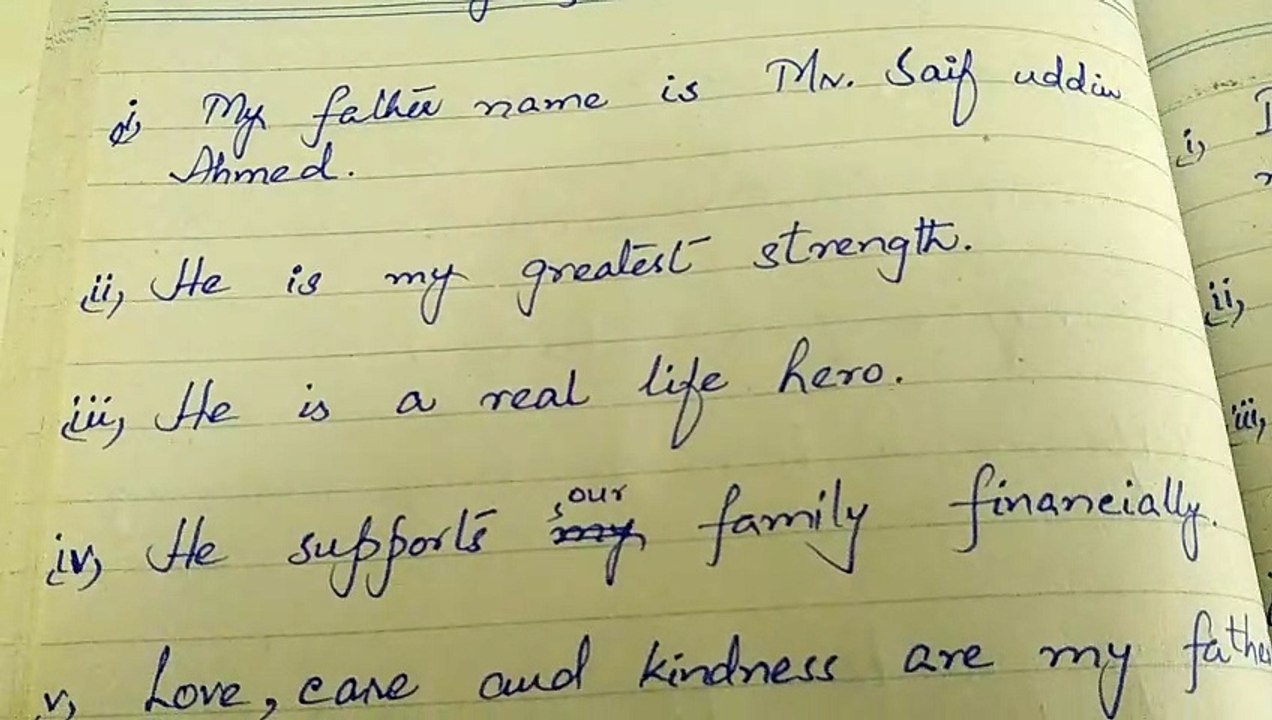 i) My father name is Mr. Saif uddin
Ahmed.
ii) He is my greatest strength.
iii) He is a real life hero.
our
iv) He supports my family financially.
v) Love, care and kindness are my fathe
i)
ii)
iii)